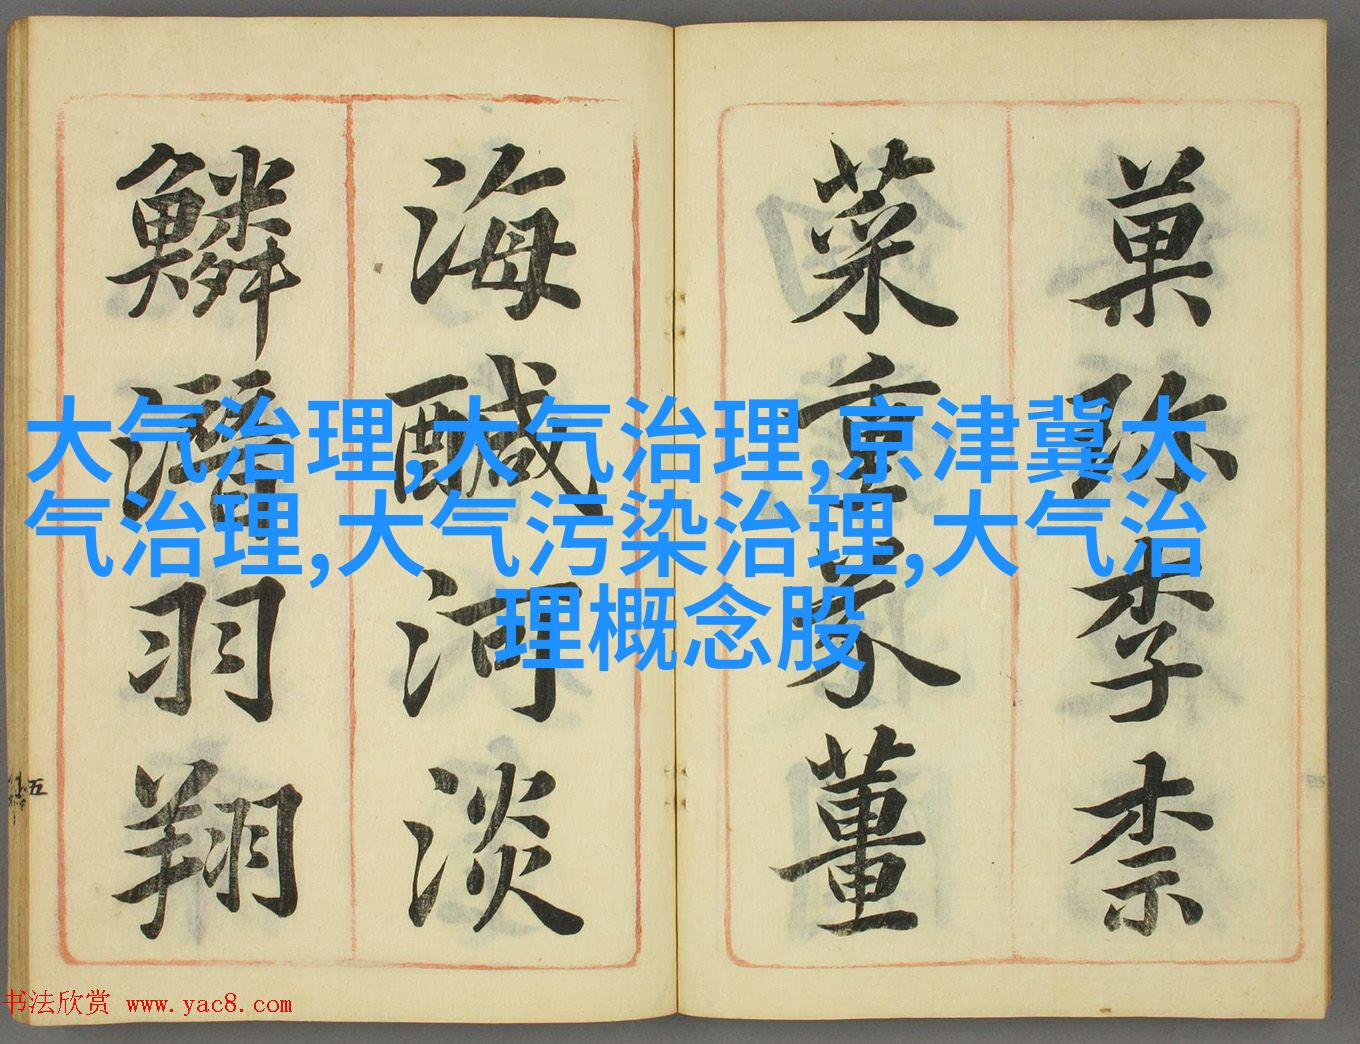 菓珍李柰
菜重芥薑
海鹹河淡
鱗潛羽翔
五
大气治理,大气治理,京津冀大
气治理,大气污染治理,大气治
理概念股
书法欣赏 www.yac8.com